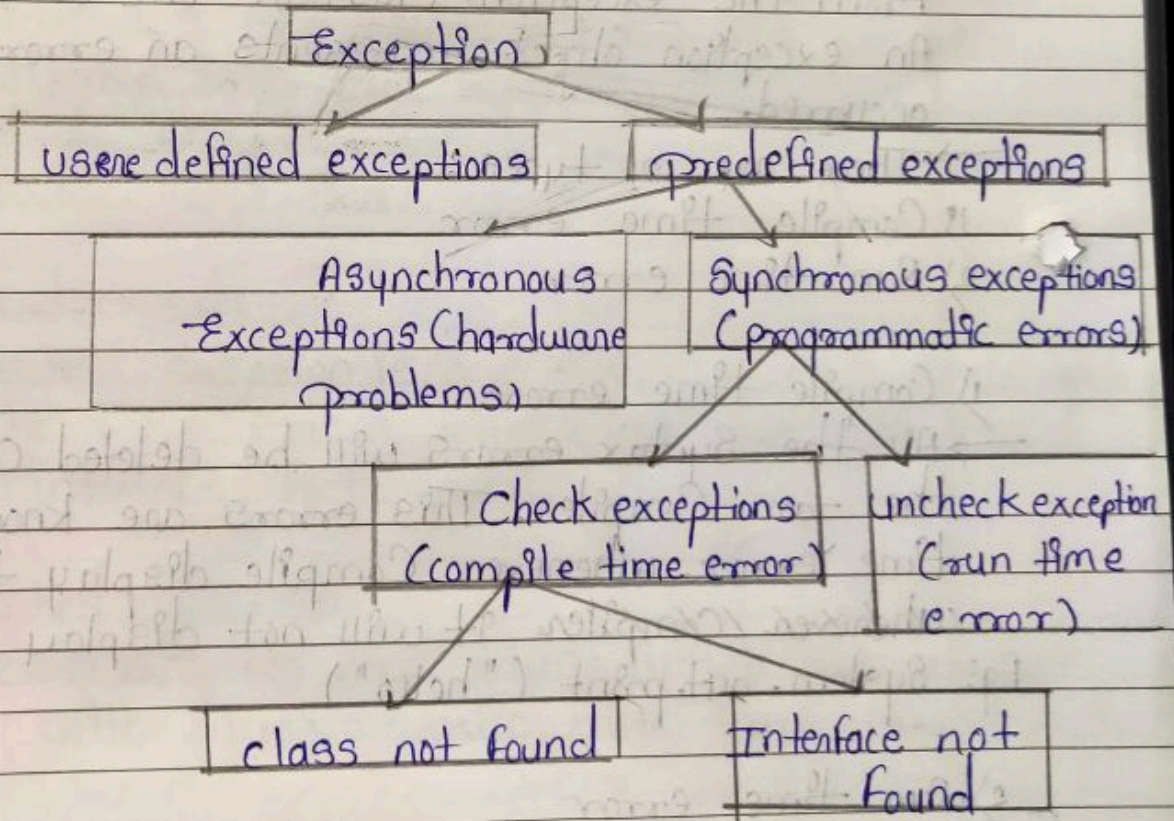 Exception
usere defined exceptions
predefined exceptions
Asynchronous
Exceptions (hardware
problems)
Synchronous exceptions
(programmatic errors)
Check exceptions
(compile time error)
uncheck exception
(run time
error)
class not found
Interface not
found